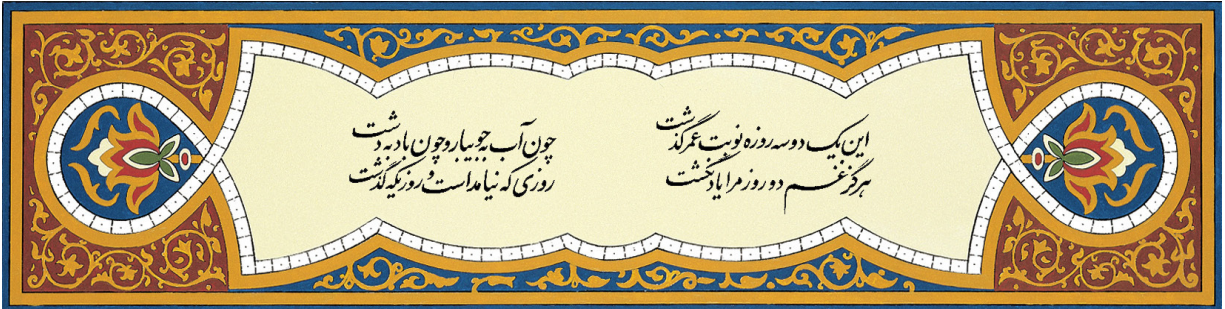 این یک دو سه روزه نوبت عمر گذشت
چون آب به جویبار و چون باد به دشت
هرگز غم دو روز مرا یاد نگشت
روزی که نیامد است و روزیکه گذشت